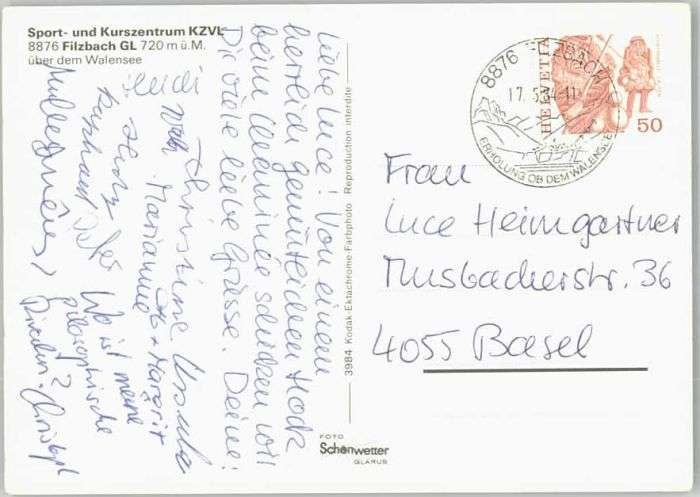 Sport- und Kurszentrum KZVL
8876 Filzbach GL 720 m ü.M.
über dem Walensee
Liebe Luce! Von einem
herrlich gemütlichen Hock
beim Cheminée schicken wir
Dir viele liebe Grüsse. Deine:
Christine Ursula
Marianne
+ Margrit
Wo ist meine
philosophische
Christoph
3984 Kodak Ektachrome-Farbphoto Reproduction interdite
FOTO
Schönwetter
GLARUS
8876 FILZBACH
17. 5.84-11
ERHOLUNG OB DEM WALENSEE
HELVETIA
50
Frau
Luce Heimgartner
Musbacherstr. 36
4055 Basel